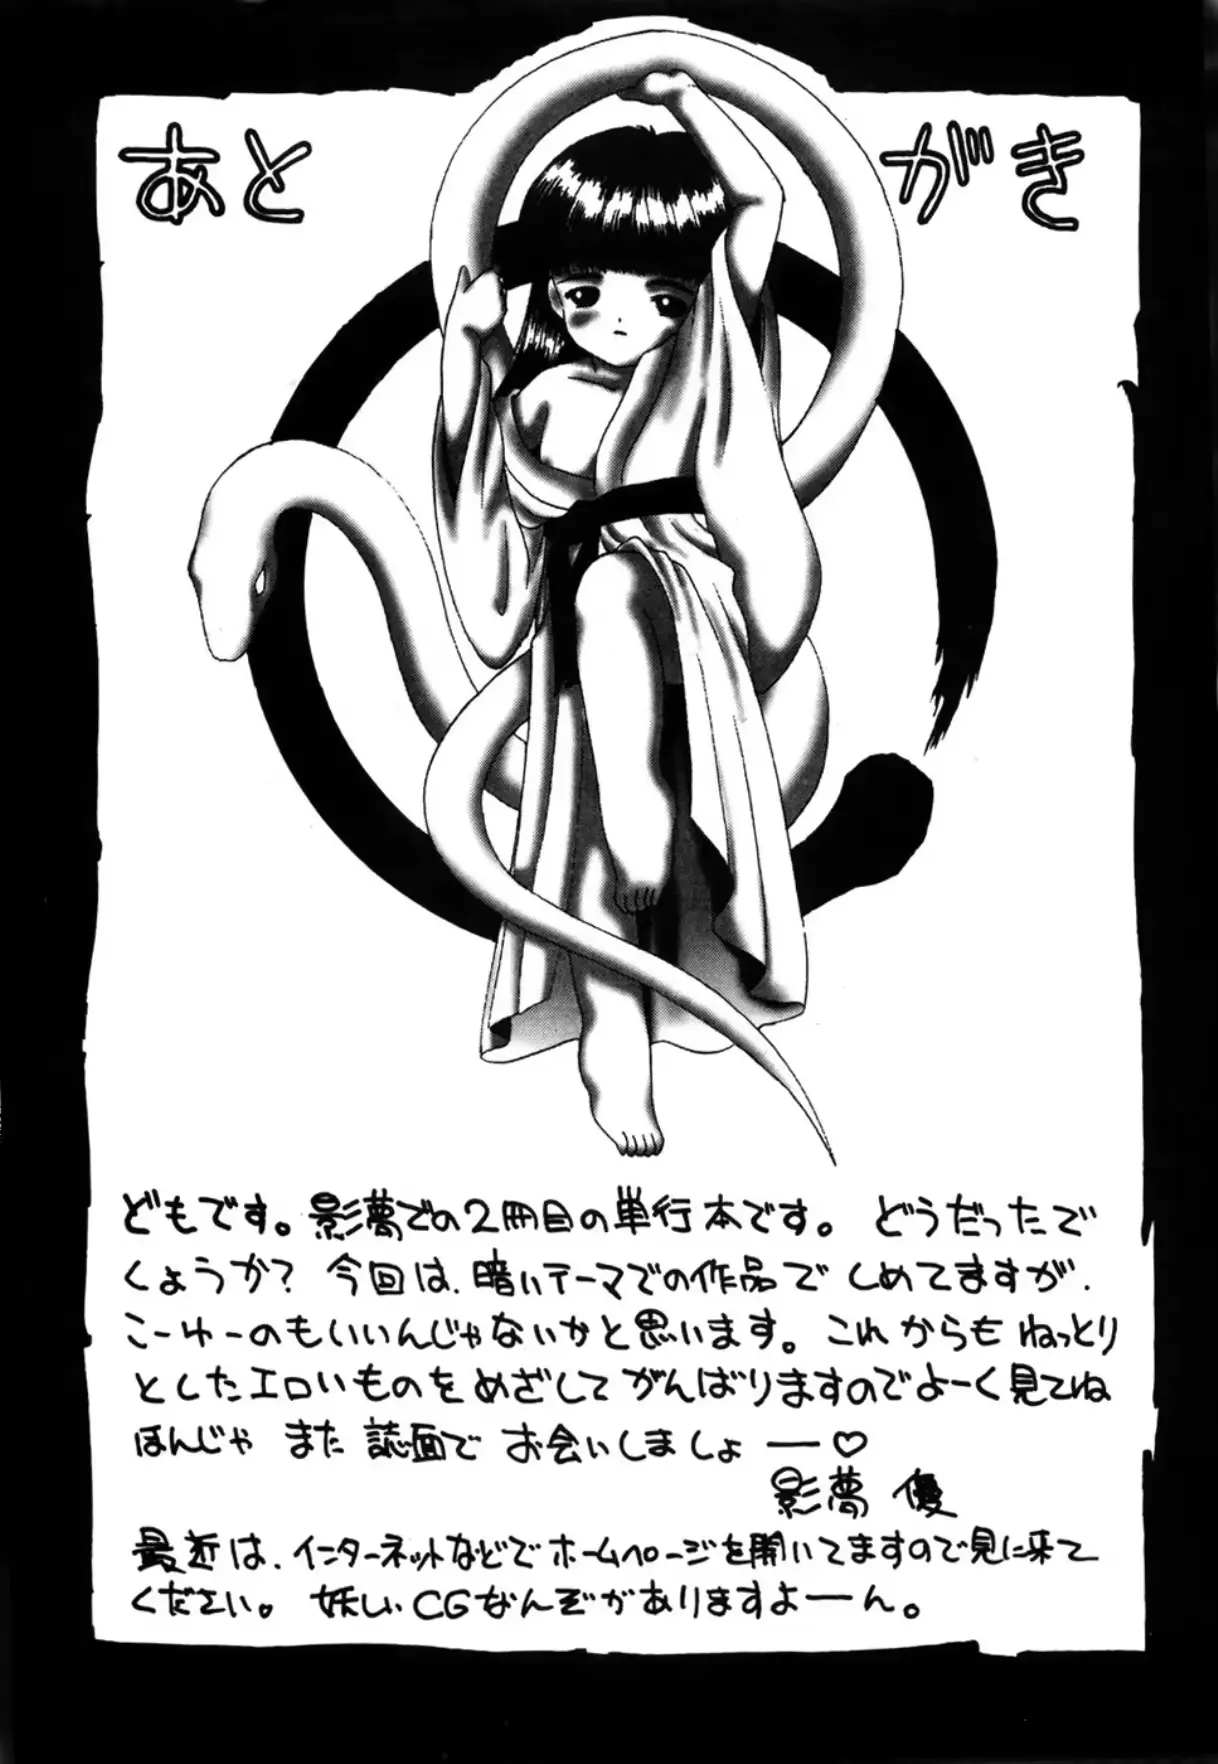 あとがき
どもです。影夢での2冊目の単行本です。どうだったで
しょうか?今回は、暗いテーマでの作品でしめてますが、
こーゆーのもいいんじゃないかと思います。これからもねっとり
としたエロいものをめざしてがんばりますのでよーく見てね
ほんじゃまた誌面でお会いしましょー♡
影夢 優
最近は、インターネットなどでホームページを開いてますので見に来て
ください。妖しいCGなんぞがありますよーん。